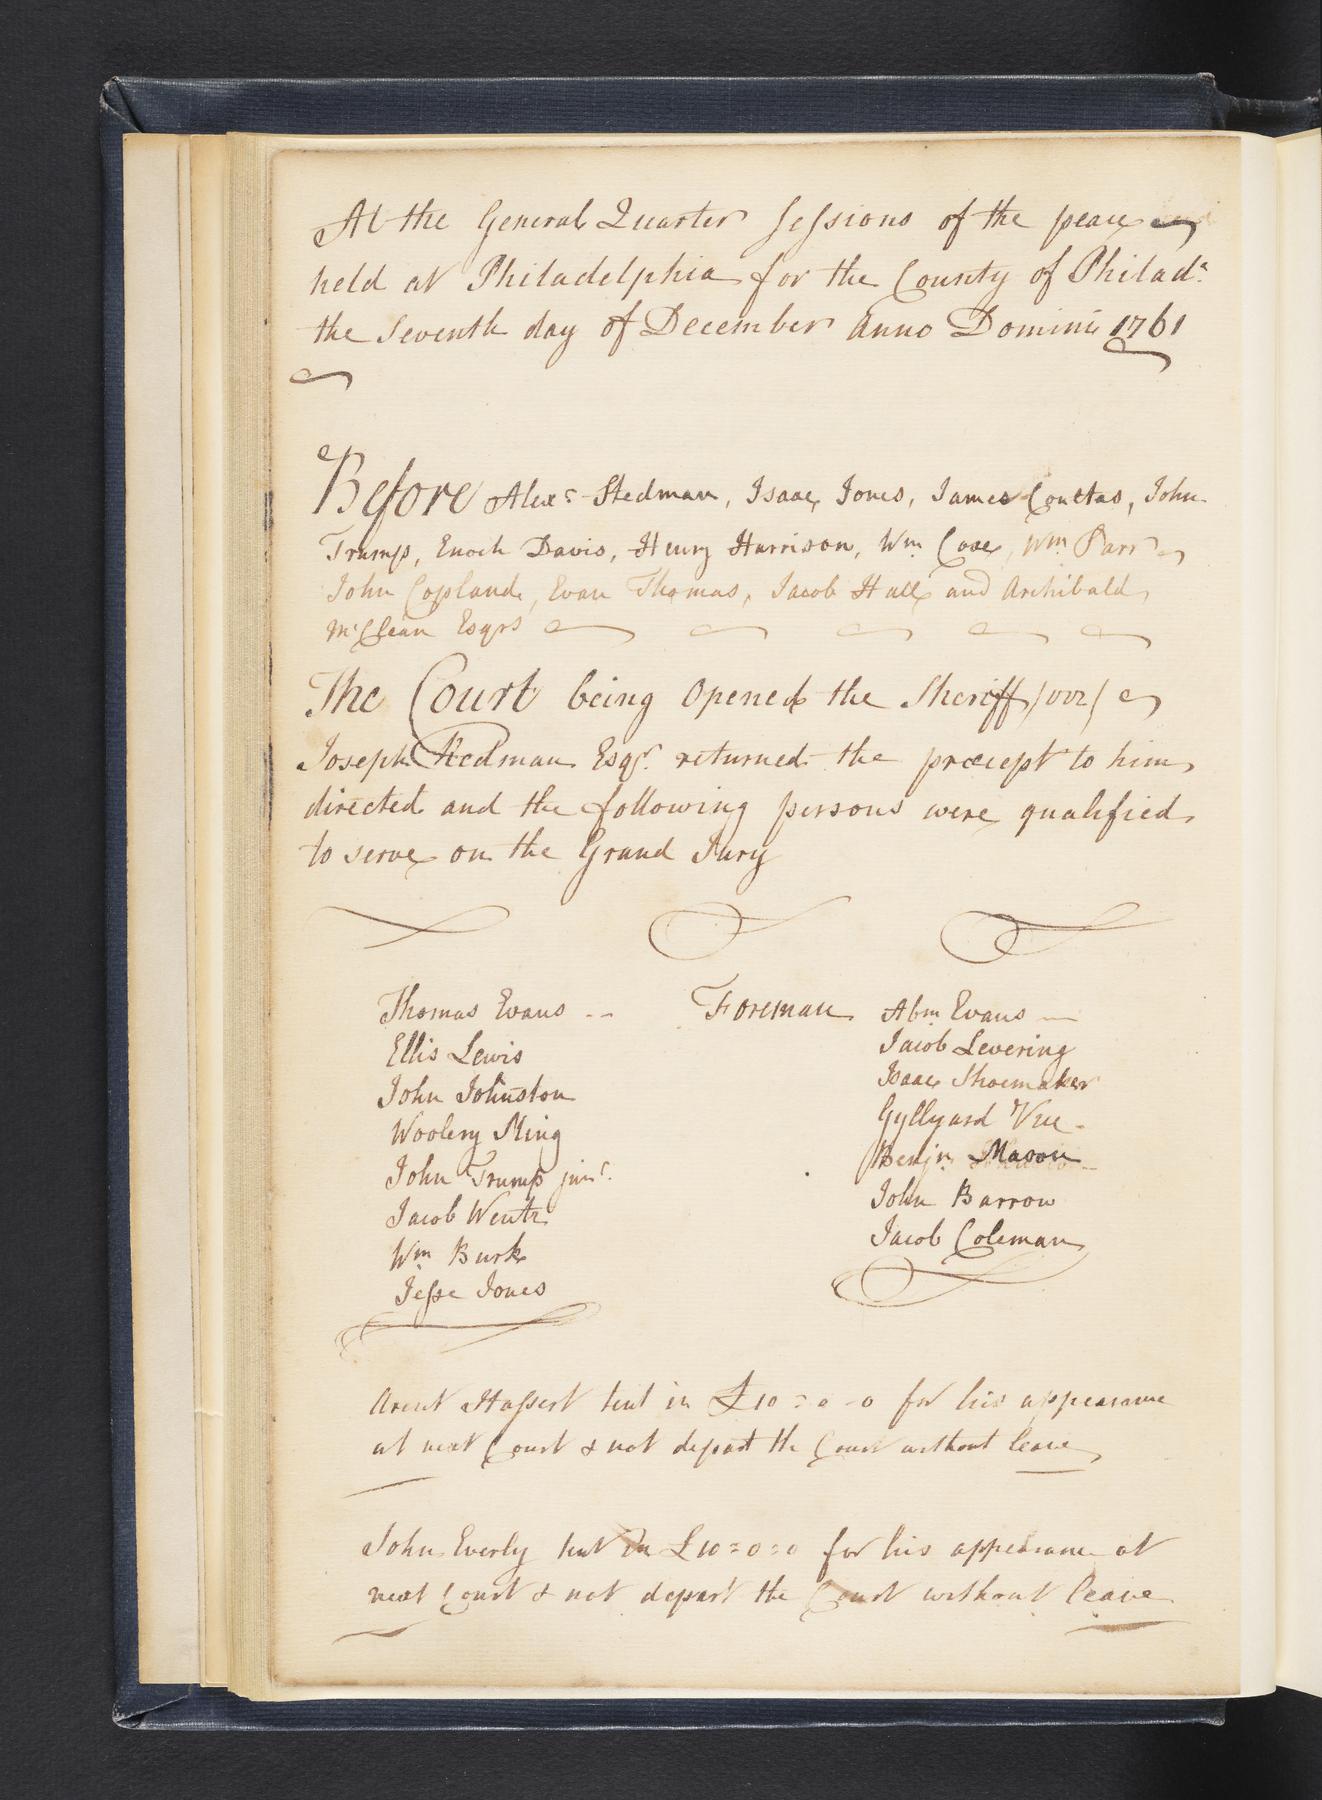 At the General Quarter Sessions of the peace
held at Philadelphia for the County of Philada
the Seventh day of December Anno Domini 1761
Before Alexr Stedman, Isaac Jones, James Coultas, John
Trump, Enoch Davis, Henry Harrison, Wm Coxe, Wm Parr
John Copland, Evan Thomas, Jacob Hall and Archibald
McClean Esqrs
The Court being Opened the Sheriff
Joseph Redman Esqr. returned the precept to him
directed and the following persons were qualified
to serve on the Grand Jury
Thomas Evans -- Foreman
Ellis Lewis
John Johnston
Woolery Ming
John Trump junr.
Jacob Wentz
Wm Burk
Jesse Jones
Abm Evans —
Jacob Levering
Isaac Shoemaker
Gyllyard
Benjn Mason
John Barrow
Jacob Coleman
Arent Hassert tent in £10=0-0 for his appearance
at next Court & not depart the Court without leave
John Everly tent in £10=0=0 for his appearance at
next Court & not depart the Court without leave